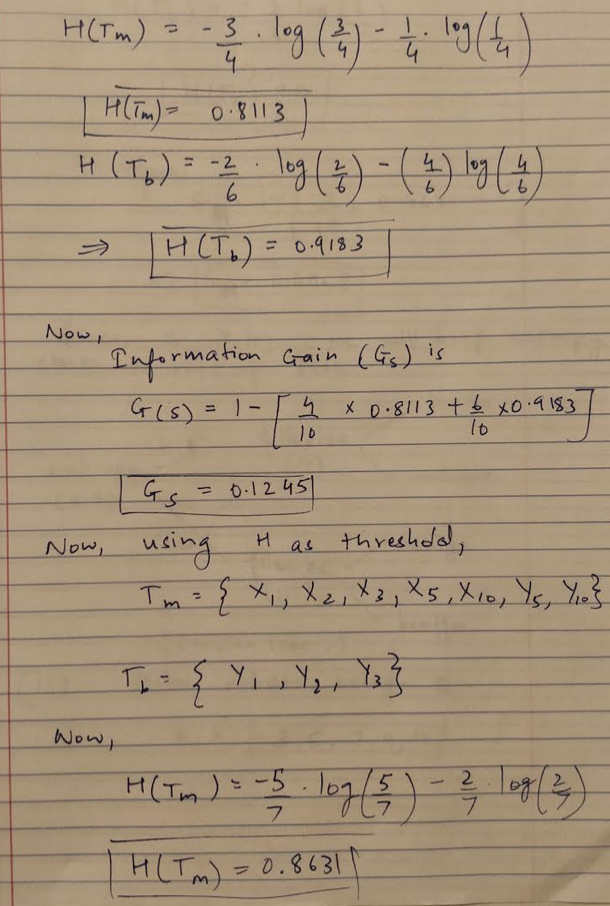 H(Tm) = -3/4 · log(3/4) - 1/4 · log(1/4)
H(Tm) = 0.8113
H(Tb) = -2/6 · log(2/6) - (4/6) log(4/6)
⇒ H(Tb) = 0.9183
Now,
Information Gain (Gs) is
G(S) = 1 - [4/10 × 0.8113 + 6/10 × 0.9183]
Gs = 0.1245
Now, using H as threshold,
Tm = { X1, X2, X3, X5, X10, Y5, Y10}
Tb = { Y1, Y2, Y3}
Now,
H(Tm) = -5/7 · log(5/7) - 2/7 · log(2/7)
H(Tm) = 0.8631